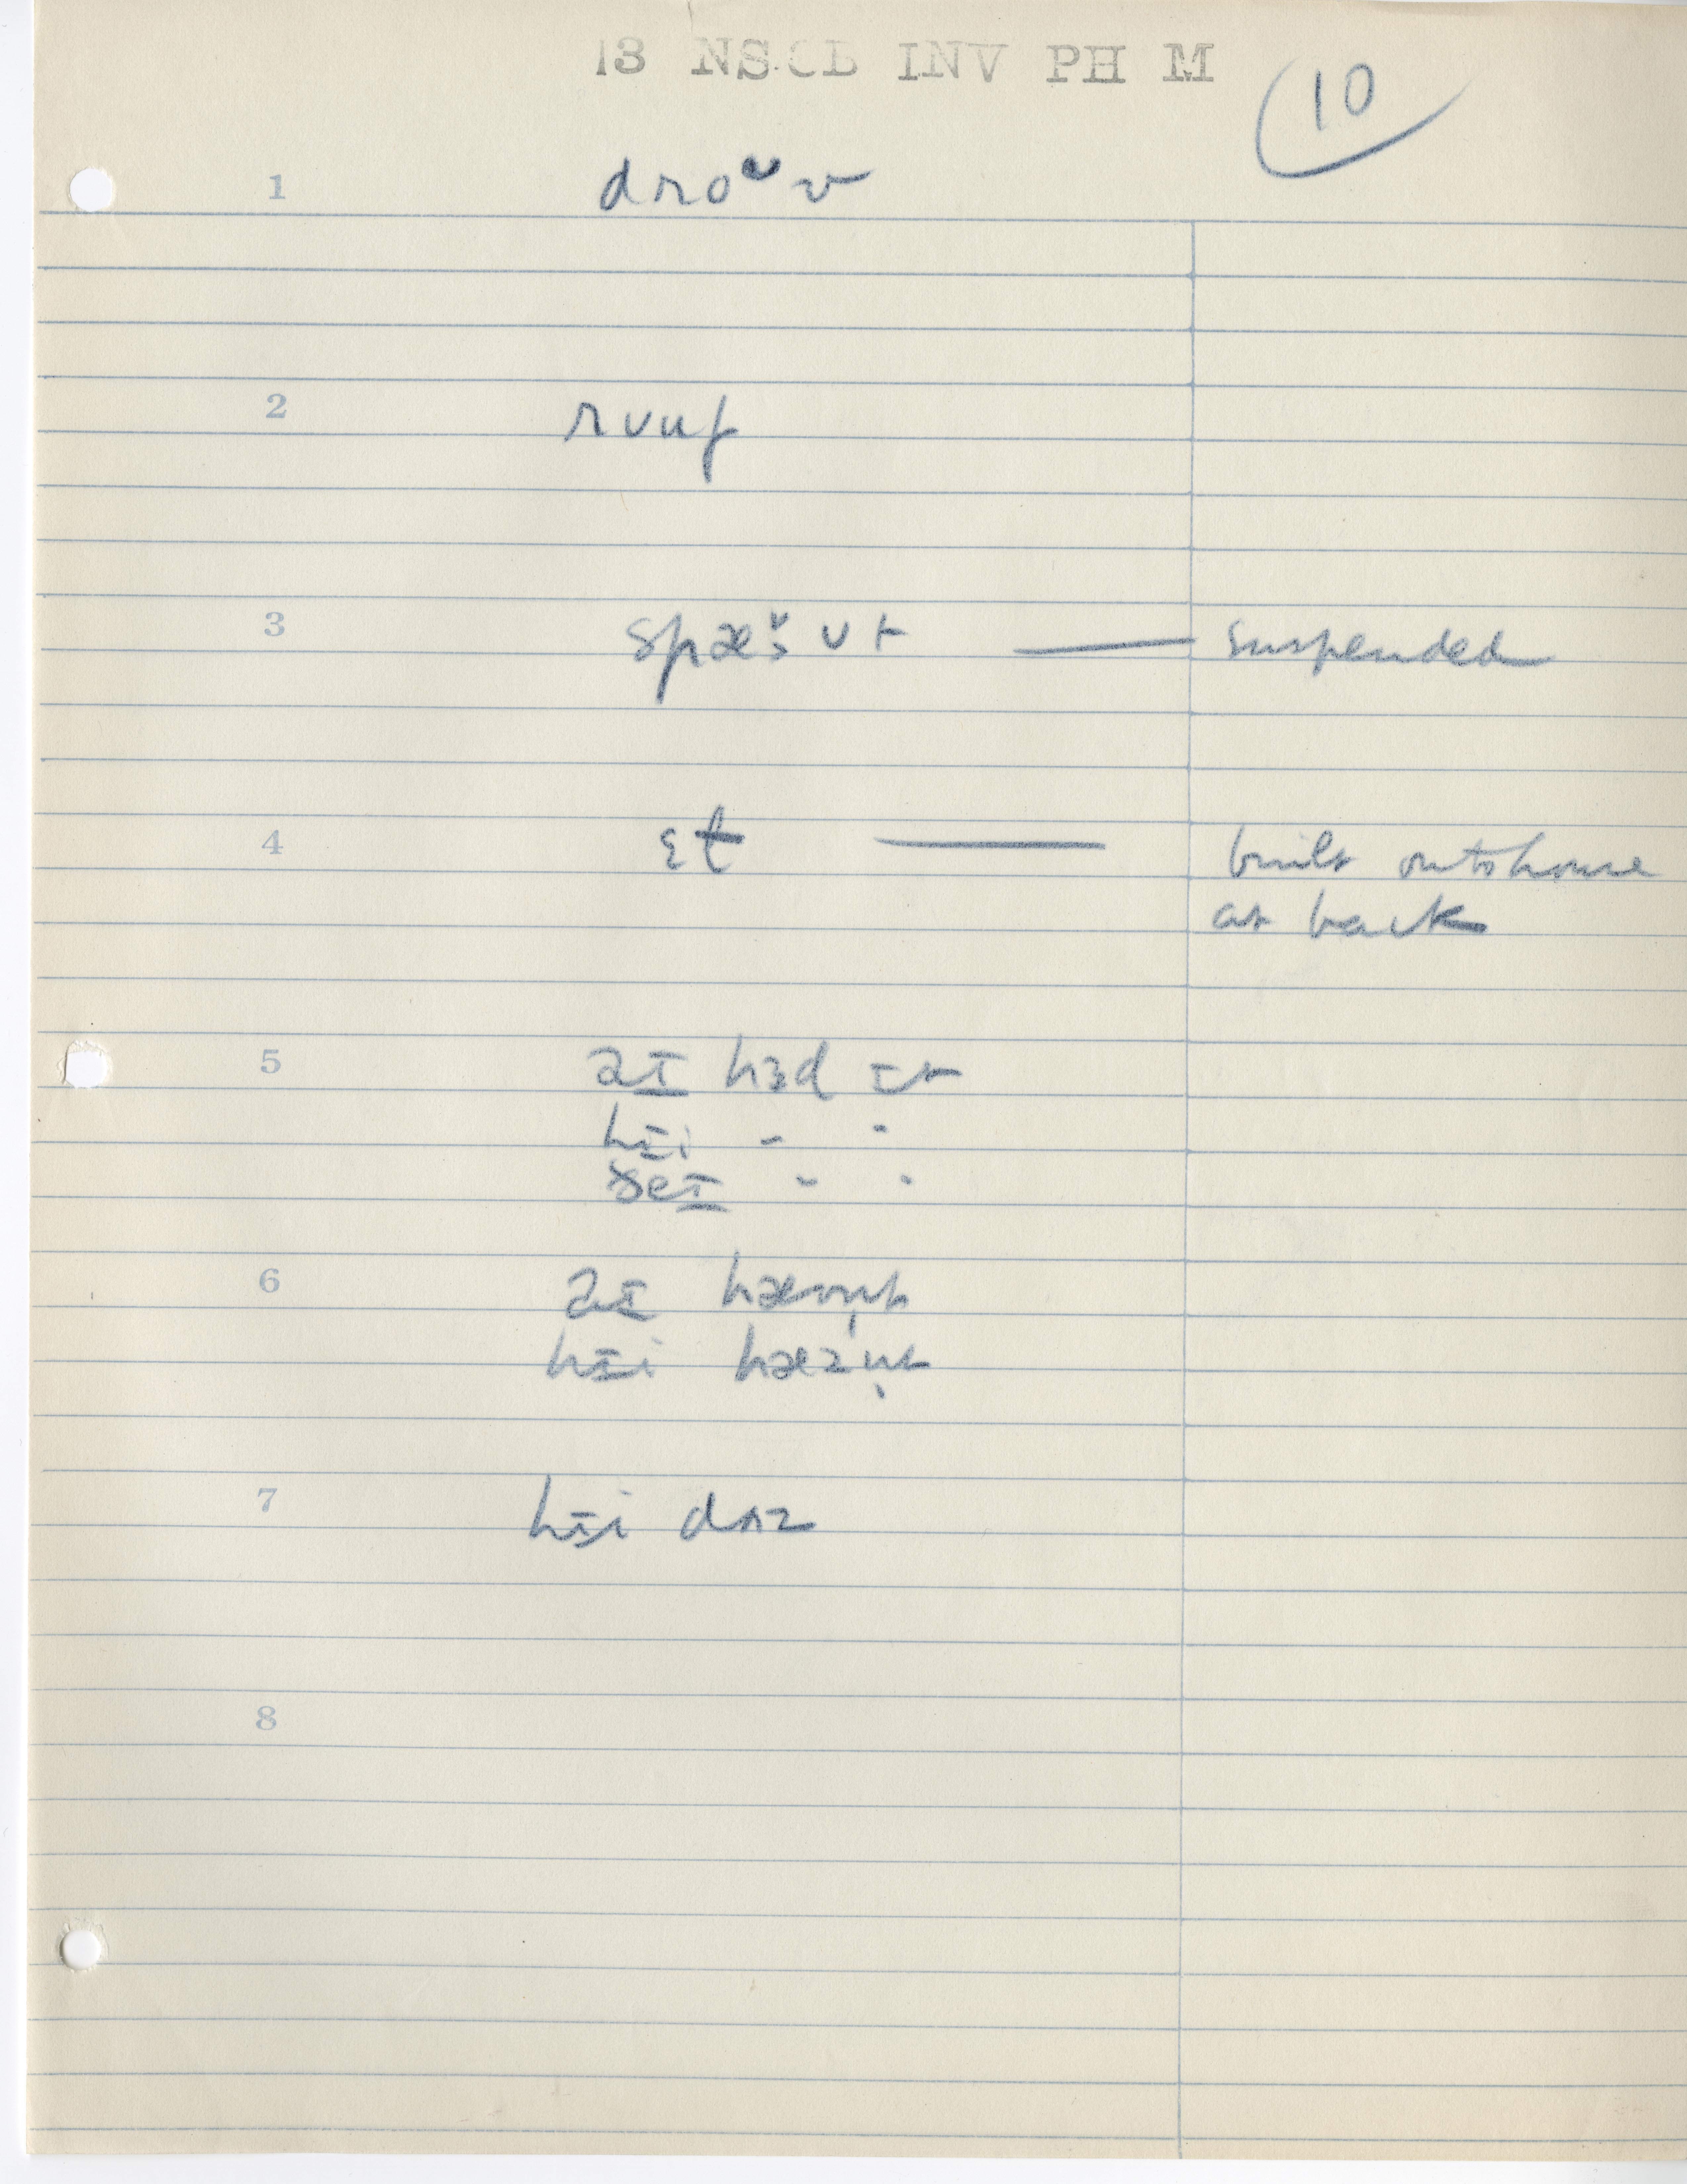 13 NSCB INV PH M
10
1 droᴜv
2 rʊuf
3 spæšʊt — suspended
4 ɛt — built outshouse
at back
5 əɪ hɜd ɪt
hɪi " "
ðeɪ " "
6 əɪ hævn̩t
hɪi hæzn̩t
7 hɪi dʌz
8